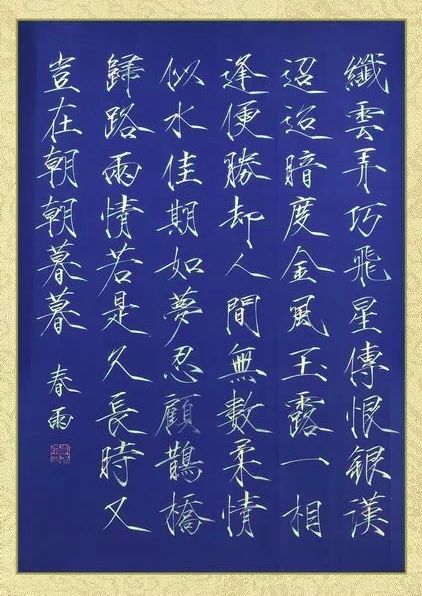 纖雲弄巧飛星傳恨銀漢
迢迢暗度金風玉露一相
逢便勝却人間無數柔情
似水佳期如夢忍顧鵲橋
歸路兩情若是久長時又
豈在朝朝暮暮
春雨